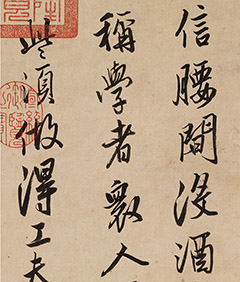 信腰間沒酒
稱學者眾人
此須做得工夫